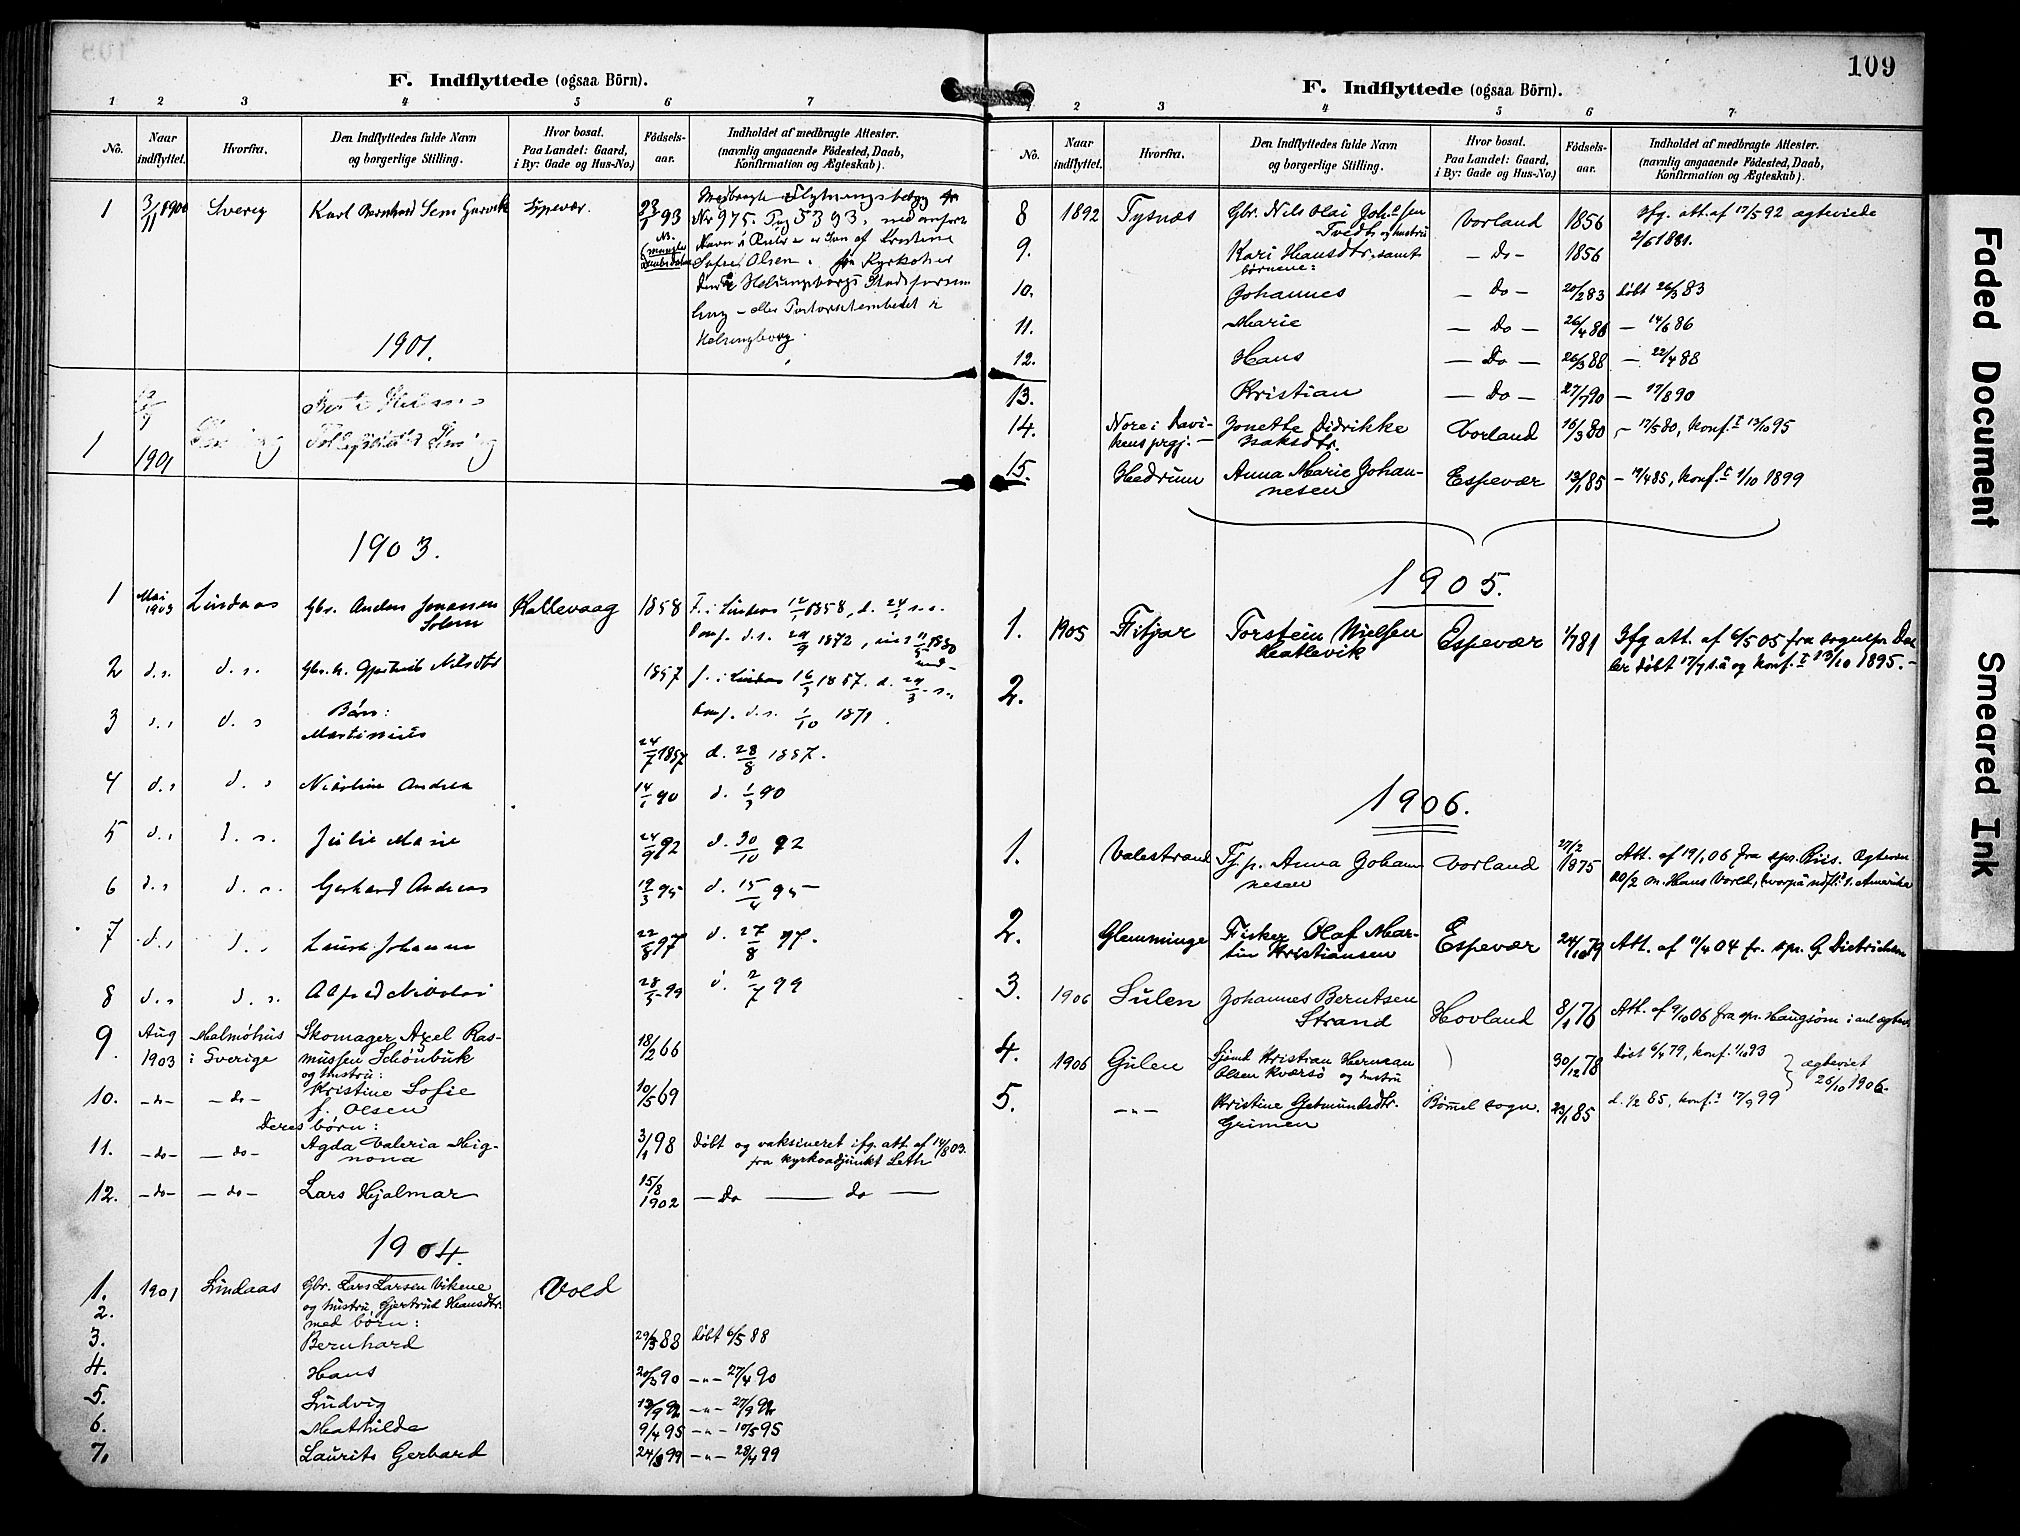 F. Indflyttede (ogsaa Börn).
1 2 3 4 5 6 7
No. Naar indflyttet. Hvorfra. Den Indflyttedes fulde Navn og borgerlige Stilling. Hvor bosat. Paa Landet: Gaard, i By: Gade og Hus-No.) Födsels-aar. Indholdet af medbragte Attester. (navnlig angaaende Födested, Daab, Konfirmation og Ægteskab).
1 3/11 1900 Sverig Karl Bernhard Sem Espevær 93
Nr 975. Pag 5393.
Navn er Søn af Kristine
Sofie Olsen. Kyrkobø
Helsingborgs Stadsforsam
ling – eller Pastorsembetet i
Helsingborg
1901.
1 1901
1903.
1 Mai 1903 Lindaas Gbr. Anders Jonassen Kallevaag 1858 F. i Lindaas 1858, d. 24/1 s.s.
Solem Konf. d.s. 29/9 1872,
2 d.s. d.s. 1857 f. i Lindaas 16/3 1857. d. 29/3 s.s.
Konf. d.s. 1/10 1871.
3 d.s. d.s Børn:
Martinius 24/7 1887 d. 28/8 1887.
4 d.s d.s Nikoline Andrea 90 d. 90
5 d.s d.s. Julie Marie 24/9 92 d. 30/10 92
6 d.s d.s. Gerhard Andreas 19/3 95 d. 15/4 95
7 d.s d.s Laura Johanne 22/8 97 d. 27/8 97.
8 d.s d.s. Alfred Nikolai 28/5 99 d. 2/7 99
9. Aug 1903 Malmöhus i Sverige Skomager Axel Ras-
mussen Schönbuk 18/2 66
og hustru:
10. –do– –do– Kristine Sofie 10/5 69
f. Olsen
Deres børn:
11. –do– –do– Agda Valeria Mig- 3/1 98 døbt og vaksineret ifg. att. af 14/8 03.
nona fra kyrkoadjunkt Leth
12. –do– –do– Lars Hjalmar 15/8 1902 – do – do –
1904.
1. 1901 Lindaas Gbr. Lars Larsen Vikene Vold
2. og hustru, Gjertrud Hansdtr.
med børn:
3. Bernhard 29/3 88 døbt 6/5 88
4. Hans 20/3 90 –"– 27/4 90
5. Ludvig –"–
6. Mathilde 9/4 95 –"– 19/5 95
7. Laurits Gerhard 24/3 99 –"– 28/4 99
109
F. Indflyttede (ogsaa Börn).
1 2 3 4 5 6 7
No. Naar indflyttet. Hvorfra. Den Indflyttedes fulde Navn og borgerlige Stilling. Hvor bosat. Paa Landet: Gaard, i By: Gade og Hus-No.) Födsels-aar. Indholdet af medbragte Attester. (navnlig angaaende Födested, Daab, Konfirmation og Ægteskab).
8 1892 Tysnæs Gbr. Nils Olai Vorland 1856 Ifg. att. af 17/5 92 agteviede
Tvedt og hustru 2/6 1881.
9. Kari Hansdtr. samt – do – 1856
børnene:
10. Johannes – do – 20/2 83 døbt 26/3 83
11. Marie – do – 26/4 86 – 14/6 86
12. Hans – do – 26/3 88 – 22/4 88
13. Kristian – do – 27/7 90 – 17/8 90
14. Nore i Davi- Jonette Didrikke Vorland 16/3 80 – 17/5 80, konf. 13/10 95
kens prgj. – Isaksdtr.
15. Hedrum Anna Marie Johan- Espevær 13/1 85 – 19/4 85, konf. 1/10 1899
nesen
1905.
1. 1905 Fitjar Torstein Nielsen Espevær 1/7 81 Ifg att. af 6/5 05 fra sognepr. Dah
Hatlevik ler døbt 17/7 s.å og konf. 13/10 1895. –
2.
1906.
1. Valestrand Fj. p. Anna Johan Vorland 27/2 1875 Att. af 19/1 06 fra spr. Riis. Agteviet
nesen 20/2 m. Hans Vorld, hvorpå udfl. t. Amerika
2. Glemminge Fisker Olaf Mar- Espevær 24/10 79 Att. af 11/4 04 fr. spr. G. Dietrichson
tin Kristiansen
3. 1906 Sulen Johannes Berntsen Hovland 8/1 76 Att. af 9/10 06 fra spr. Haugsøm i anl. agtev.
Strand
4. 1906 Gulen Sjømd Kristian Herman 30/12 78 døbt 6/4 79, konf. 1/10 93 agteviet
Olsen Kværsø og hustru 26/10 1906.
5. –"– Kristine Getmundsdtr. Bømmel sogn. 23/1 85 d. 1/2 85, konf. 17/9 99
Grimen
Faded Document
Smeared Ink